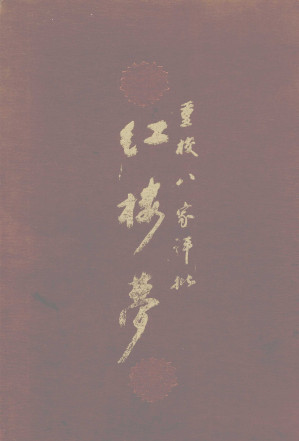 重校八家评批
红楼梦